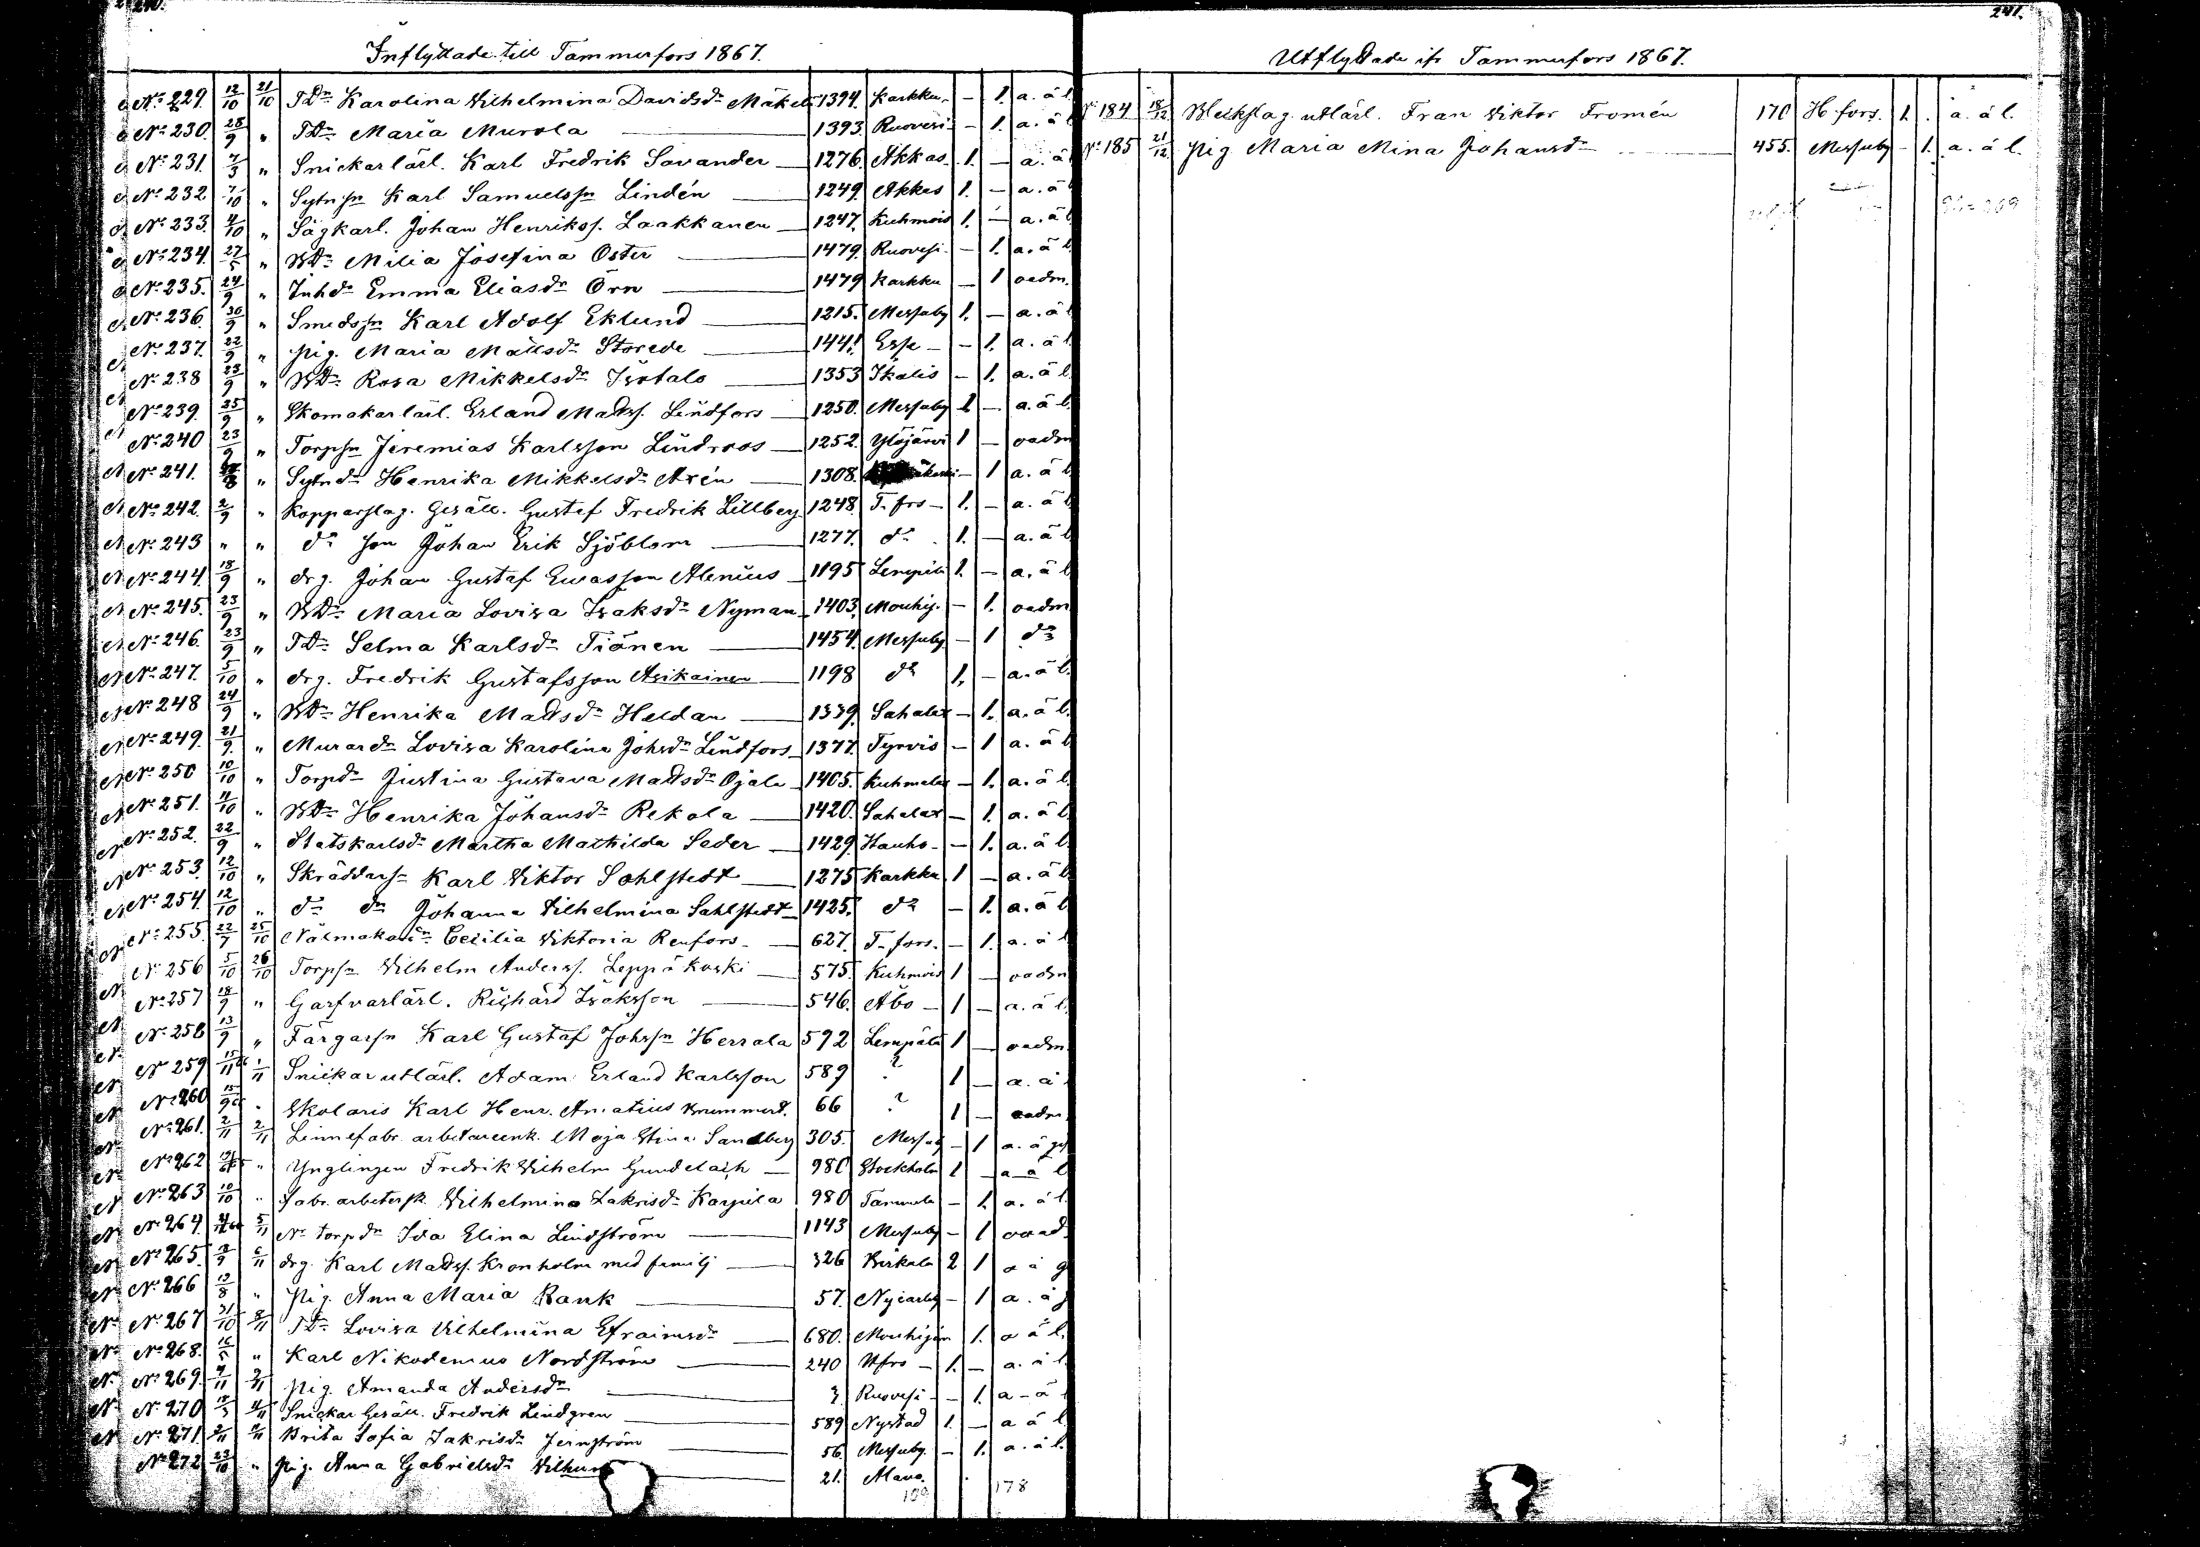 240.
Inflyttade till Tammerfors 1867.
No. 229. 12/10 21/10 TDr Karolina Wilhelmina Davidsdr Mäkelä 1394. Karkku. – 1. a. ä l
No. 230. 28/9 " TDr Maria Murola 1393. Ruovesi – 1. a. ä l
No. 231. 7/3 " Snickarlärl. Karl Fredrik Savander 1276. Akkas. 1. – a. ä l
No. 232 7/10 " Sytnsn Karl Samuelssn Lindén 1249. Akkas 1. – a. ä l
No. 233. 4/10 " Sågkarl. Johan Henrikss. Laakkanen 1247. Kuhmois 1. – a. ä l
No. 234. 27/5 " BDr Milia Josefina Öster 1479. Ruovesi – 1. a. ä l
No. 235. 24/9 " Inhdr Emma Eliasdr Örn 1479 Karkku – 1 oadm.
No. 236. 30/9 " Smedssn Karl Adolf Eklund 1215. Messuby 1. – a. ä l
No. 237. 22/9 " pig. Maria Mattsdr Storede 1441. Esse – – 1. a. ä l
No. 238 23/9 " BDr Rosa Mikkelsdr Isotalo 1353 Ikalis – 1. a. ä l
No. 239. 25/9 " Skomakarlärl. Erland Matss. Lindfors 1250. Messuby 1 – a. ä l.
No. 240 23/9 " Torpsn Jeremias Karlsson Lindroos 1252. Ylöjärvi 1 – oadm
No. 241. " Sytndr Henrika Mikkelsdr Arén 1308. – 1 a. ä l
No. 242. 2/9 " Kopparslag. Gesäll. Gustaf Fredrik Lillberg 1248. T.fors – 1. – a. ä l
No. 243 " " do son Johan Erik Sjöblom 1277. do . 1. – a. ä l
No. 244. 18/9 " drg. Johan Gustaf Ewasson Alenius 1195 Lempäla 1. – a. ä l
No. 245. 23/9 " BDr Maria Lovisa Isaksdr Nyman 1403. Mouhij. – 1. oadm
No. 246. 23/9 " TDr Selma Karlsdr Tiänen 1454. Messuby – 1 do
No. 247. 5/10 " drg. Fredrik Gustafsson Asikainen 1198 do 1. – a. ä l.
No. 248 24/9 " BDr Henrika Matsdr Heldan 1339. Sahalax – 1. a. ä l.
No. 249. 21/9 " Murardr Lovisa Karolina Johsdr Lindfors 1377. Tyrvis – 1 a. ä l
No. 250 10/10 " Torpdr Justina Gustava Matsdr Ojala 1405. Kuhmalax – 1. a. ä l
No. 251. 11/10 " BDr Henrika Johansdr Rekola 1420. Sahalax – 1. a. ä l
No. 252. 22/9 " Statskarlsdr Martha Mathilda Seder 1429. Hauho – – 1. a. ä l
No. 253. 12/10 " Skräddarsn Karl Viktor Sahlstedt 1275 Karkku 1 – a. ä l
No. 254 12/10 " do dr Johanna Vilhelmina Sahlstedt 1425. do – 1. a. ä l
No. 255. 22/7 25/10 Cecilia Viktoria Renfors 627. T.fors. – 1. a. ä l
No. 256 5/10 26/10 Torpsn Vilhelm Anderss. Leppäkoski 575. Kuhmois 1 – oadm
No. 257 18/9 " Garfvarlärl. Richard Isaksson 546. Åbo – 1 – a. ä l.
No. 258 13/9 " Färgarsn Karl Gustaf Johssn Herrala 592 Lempäla 1 – oadm.
No 259 15/11 1/11 Snickar utlärl. Adam Erland Karlsson 589 ? 1 – a. ä
No. 260 15/9 " Skolaris Karl Henr. Amatius 66 ? 1 – oadm.
No. 261. 2/11 2/11 Linnefabr. arbetareenk. Maja Stina Sandberg 305. Messuby – 1 a. ä
No 262 " Ynglingen Fredrik Vilhelm Gundelach 980 Stockholm 1 – a ä l
No. 263 10/10 " fabr. arbetersk. Vilhelmina Zakrisdr Karpila 980 Tammela – 1. a. ä l.
No. 264. 5/11 torpdr Ida Elina Lindström 1143 Messuby – 1
No. 265. 6/11 drg. Karl Matss. Kronholm med familj 326 Birkala 2 1 a ä g
No. 266 13/8 " pig. Anna Maria Rank 57. Nycarby – 1 a. ä
No. 267 31/10 8/11 TDr Lovisa Vilhelmina Efraimsdr 680. Mouhijärvi 1. a ä l.
No. 268. 16/5 " Karl Nikodemus Nordström 240 – 1. – a. ä l
No. 269. 9/11 pig. Amanda Andersdr Ruovesi – – 1. a – ä
No. 270 11/11 Snickar Gesäll. Fredrik Lindgren 589 Nystad 1. – a ä l
No. 271. Brita Sofia Zakrisdr Jernström 56 Messuby. – 1. a. ä l.
No 272 23/10 " pig. Anna Gabrielsdr 21. Alavo.
178
241.
Utflyttade ifr. Tammerfors 1867.
No. 184 18/12 Bleckslag. utlärl. Frans Viktor Fromén 170 H.fors. 1. . a. ä l.
No. 185 21/12 pig Maria Mina Johansdr 455. Messuby – 1. a. ä l.